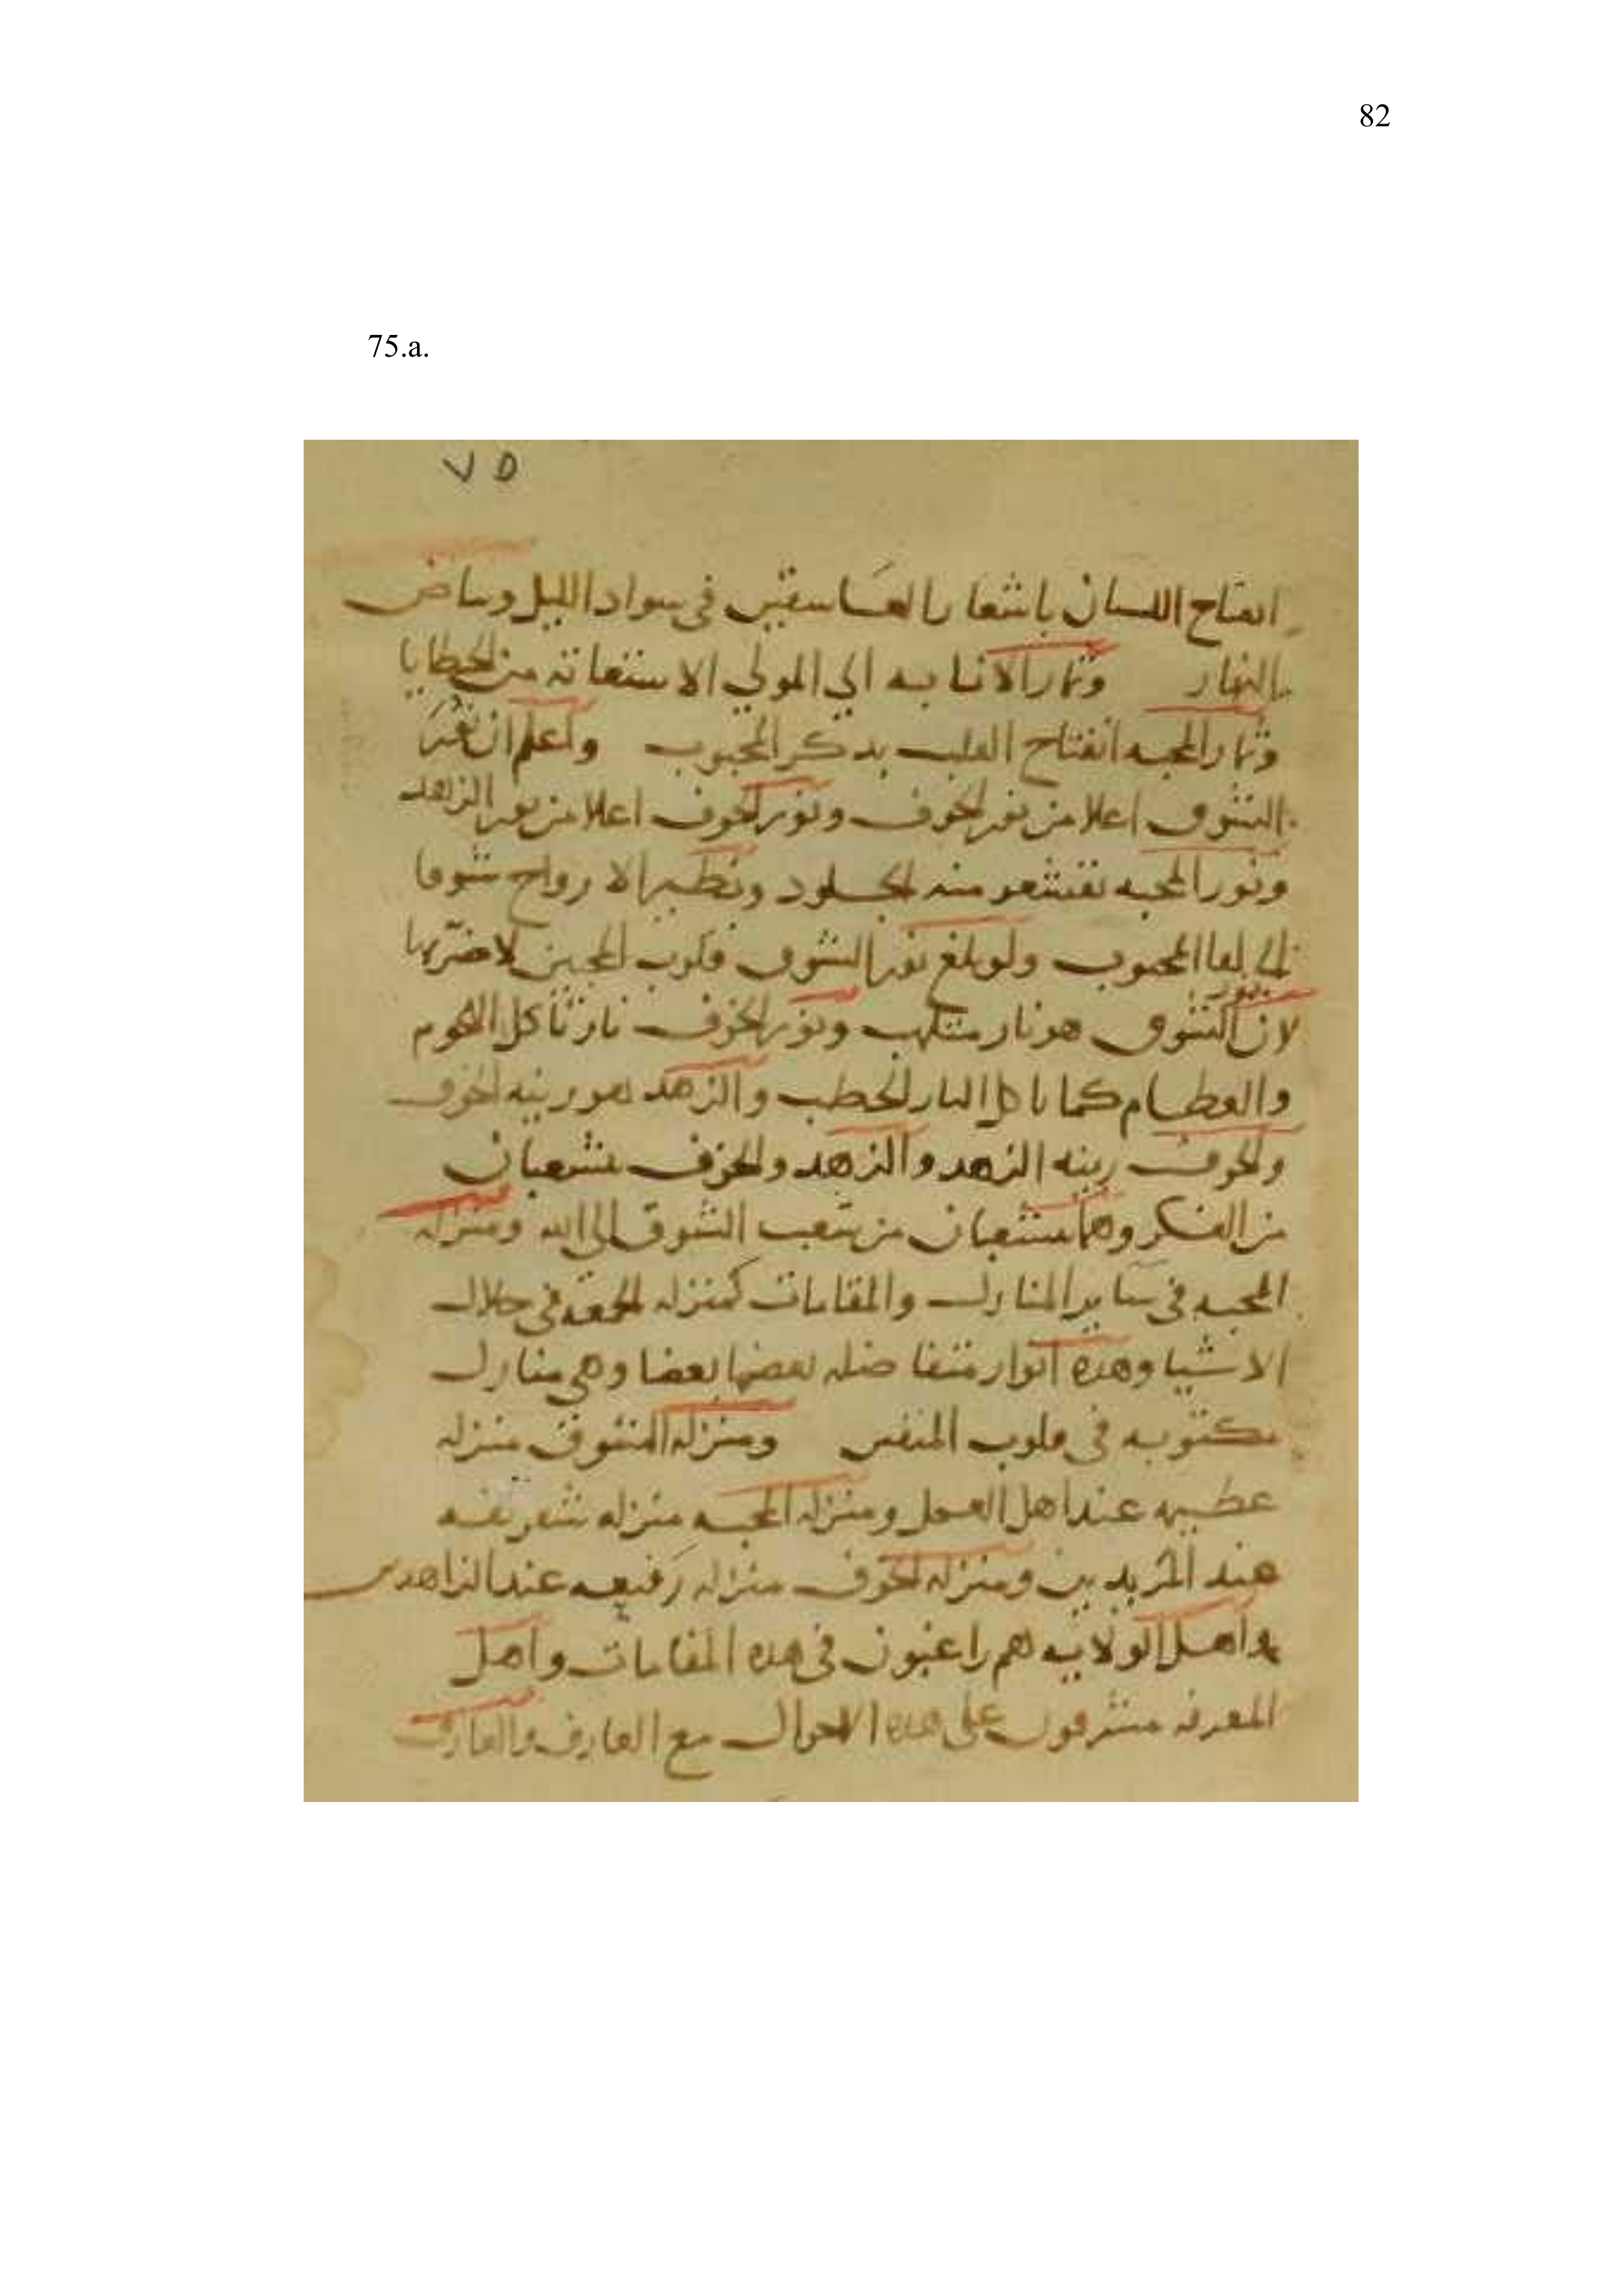 82
75.a.
٧٥
انفتاح اللسان باشعار العاشقين في سواد الليل وبياض
النهار وثمار الانابه الي المولي الاستغاثه من الخطايا
وثمار المحبه انفتاح القلب بذكر المحبوب واعلم ان نور
الشوق اعلا من نور الخوف ونور الخوف اعلا من نور الزهد
ونور المحبه تقشعر منه الجلود وتطير الارواح شوقا
الي لقا المحبوب ولو بلغ نور الشوق قلوب المحبين لاضر بها
لان نور الشوق هو نار متلهب ونور الخوف نار تأكل اللحوم
والعظام كما تاكل النار الحطب والزهد هو زينه الخوف
والخوف زينه الزهد والزهد والخوف شعبان
من الفكر وهما شعبان من شعب الشوق الي الله ومنزله
المحبه في ساير المنازل والمقامات كمنزله الجمعه في خلال
الاشيا وهذه انوار متفاضله بعضها بعضا وهي منازل
مكتوبه في قلوب المتقين ومنزله الشوق منزله
عظيمه عند اهل العمل ومنزله المحبه منزله شريفه
عند المريدين ومنزله الخوف منزله رفيعه عند الزاهدين
واهل الولايه هم راغبون في هذه المقامات واهل
المعرفه مشرفون علي هذه الاحوال مع العارف والعارف